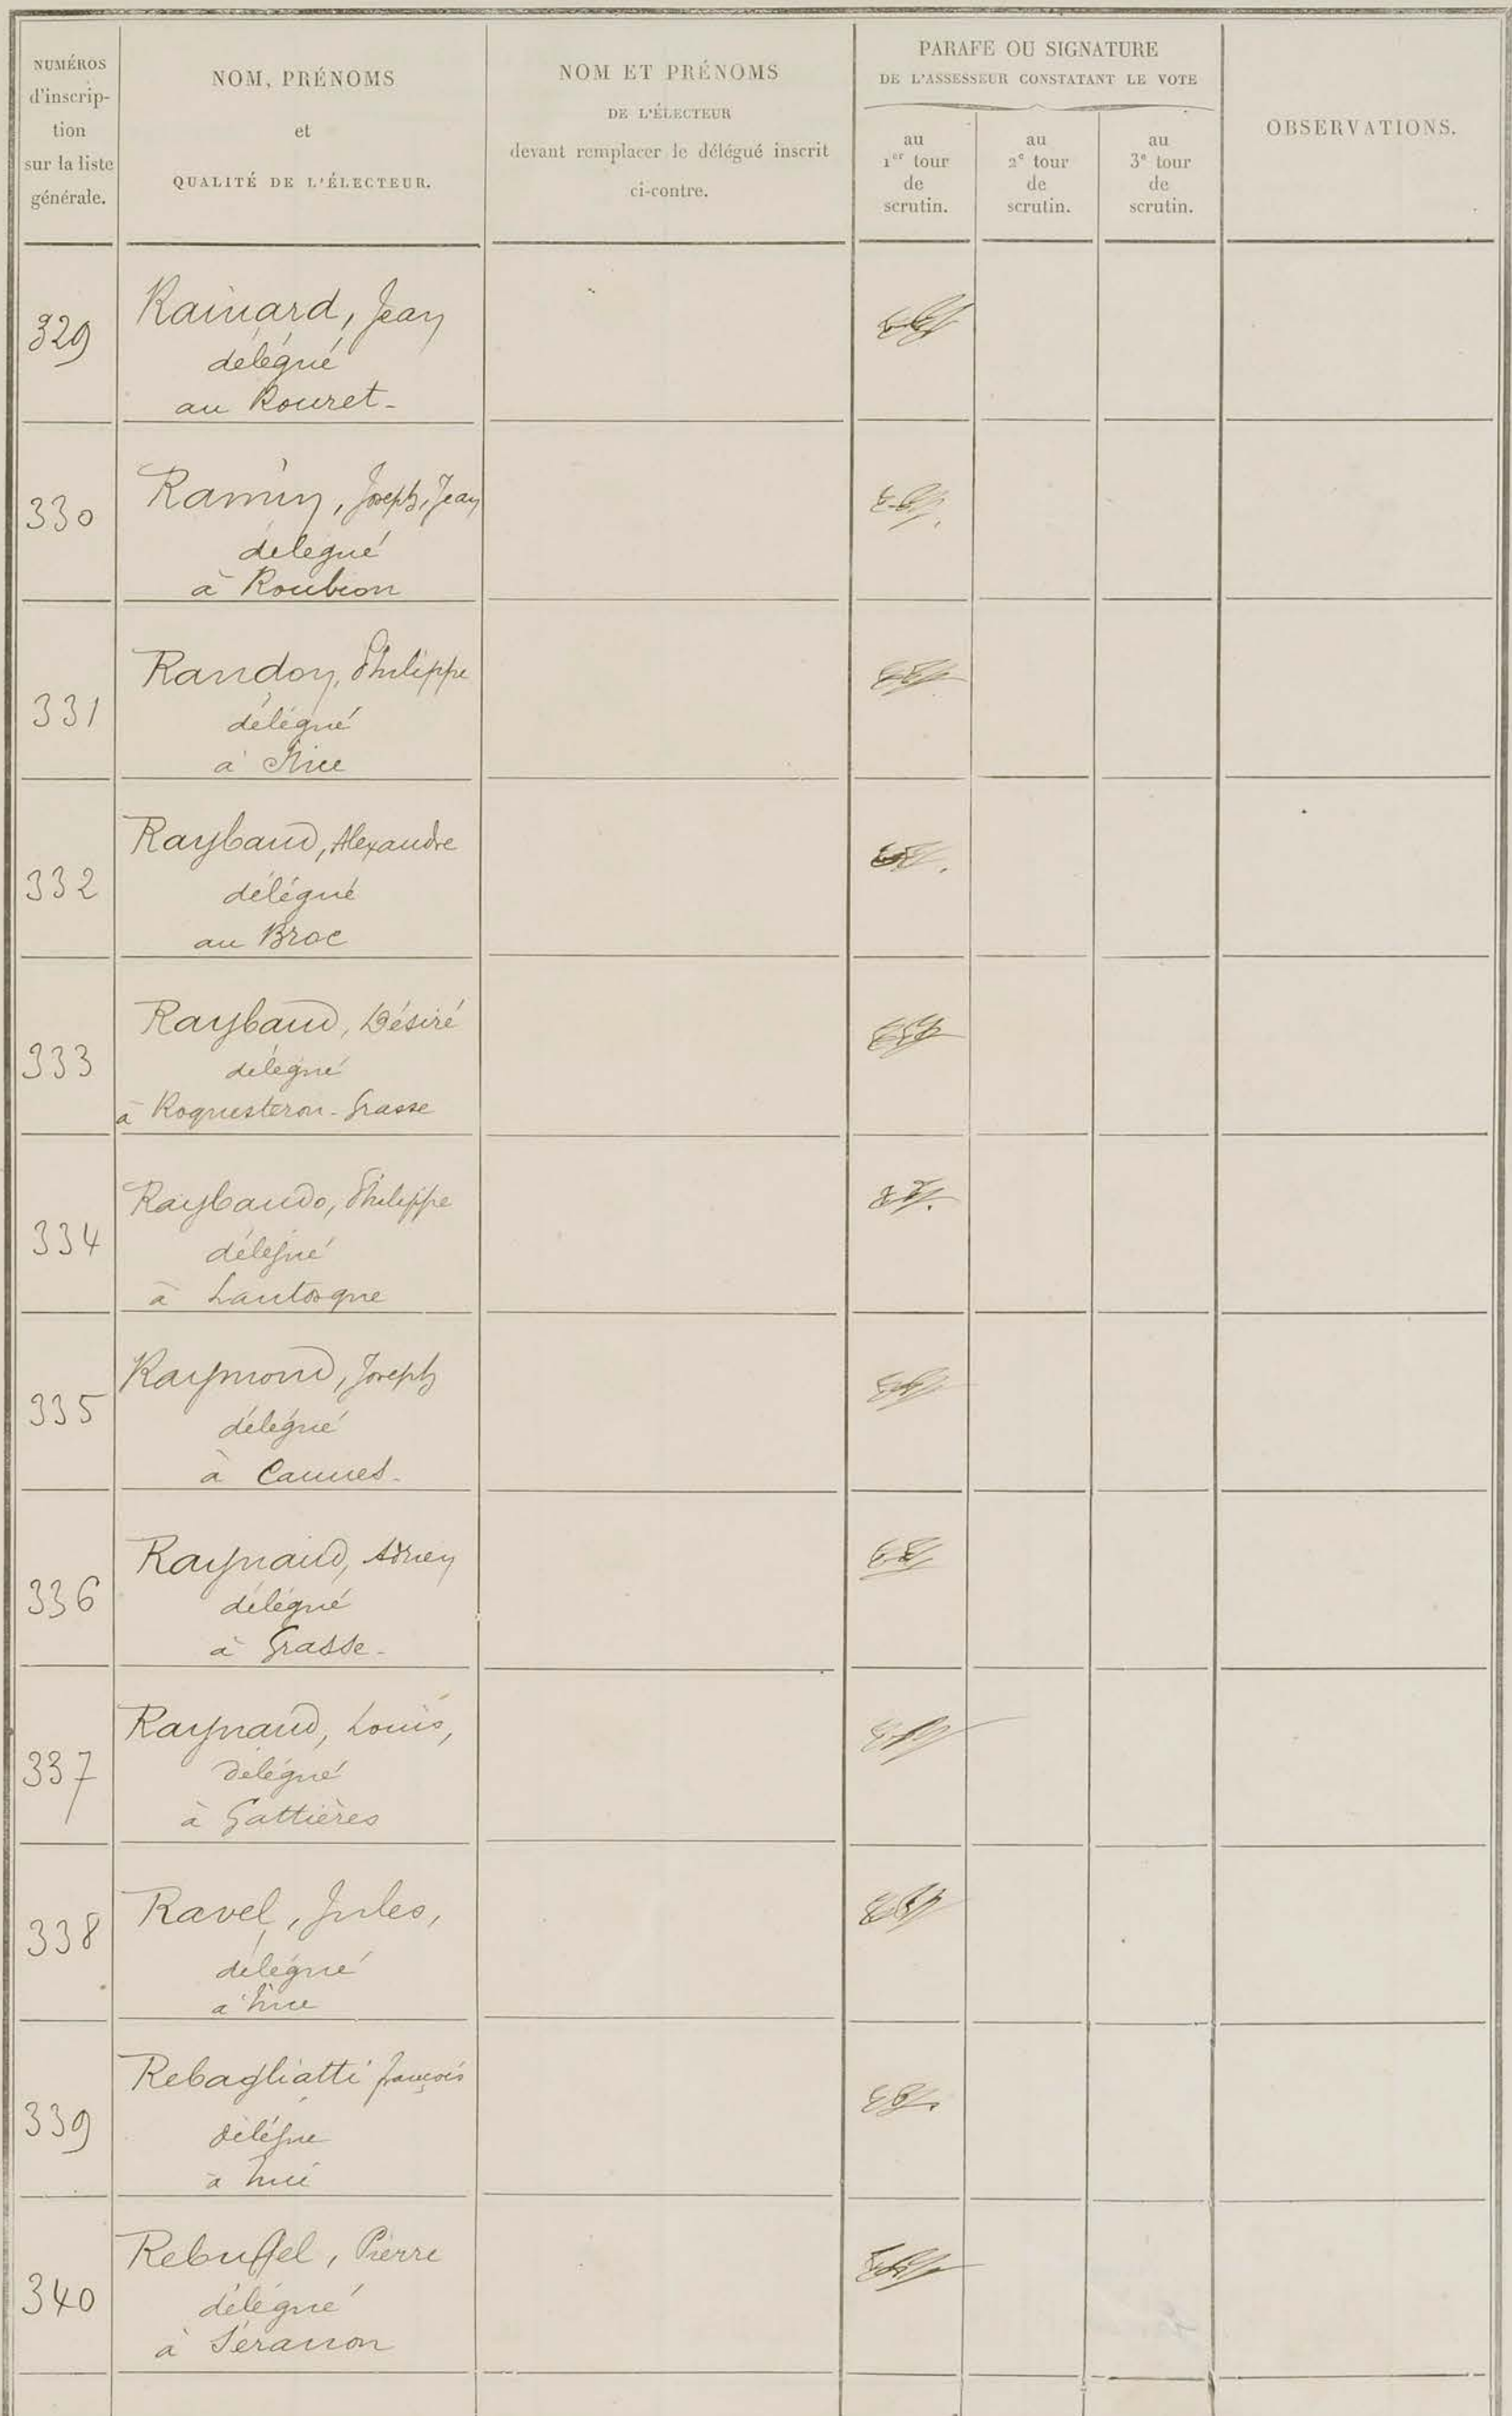 NUMÉROS
d'inscrip-
tion
sur la liste
générale.
NOM, PRÉNOMS
et
QUALITÉ DE L'ÉLECTEUR.
NOM ET PRÉNOMS
DE L'ÉLECTEUR
devant remplacer le délégué inscrit
ci-contre.
PARAFE OU SIGNATURE
DE L'ASSESSEUR CONSTATANT LE VOTE
au
1er tour
de
scrutin.
au
2e tour
de
scrutin.
au
3e tour
de
scrutin.
OBSERVATIONS.
329
Rainard, Jean
délégué
au Rouret-
330
Ramin, Joseph, Jean
délegué
à Roubion
331
Randon, Philippe
délégué
à Nice
332
Raybaud, Alexandre
délégué
au Broc
333
Raybaud, Désiré
délégué
à Roquesteron-Grasse
334
Raybaudo, Philippe
délégué
à Lantosque
335
Raymond, Joseph
délégué
à Cannes-
336
Raynaud, Adrien
délégué
à Grasse-
337
Raynaud, Louis,
délégué
à Gattières
338
Ravel, Jules,
délégué
à Nice
339
Rebagliatti François
délégué
à Nice
340
Rebuffel, Pierre
délégué
à Séranon